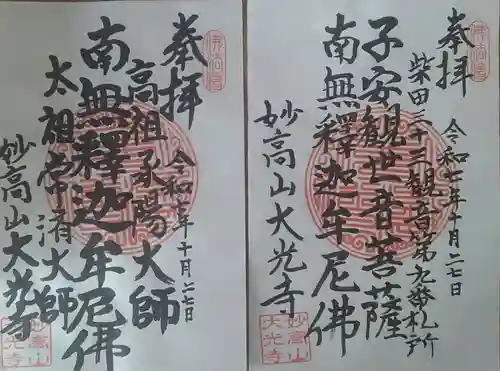 奉拝
柴田三十三観音第九番札所
令和七年十月二七日
子安観世音菩薩
南無釋迦牟尼佛
妙高山大光寺
妙高山
大光寺
奉拝
令和七年十月二七日
高祖承陽大師
南無釋迦牟尼佛
太祖常済大師
妙高山大光寺
妙高山
大光寺